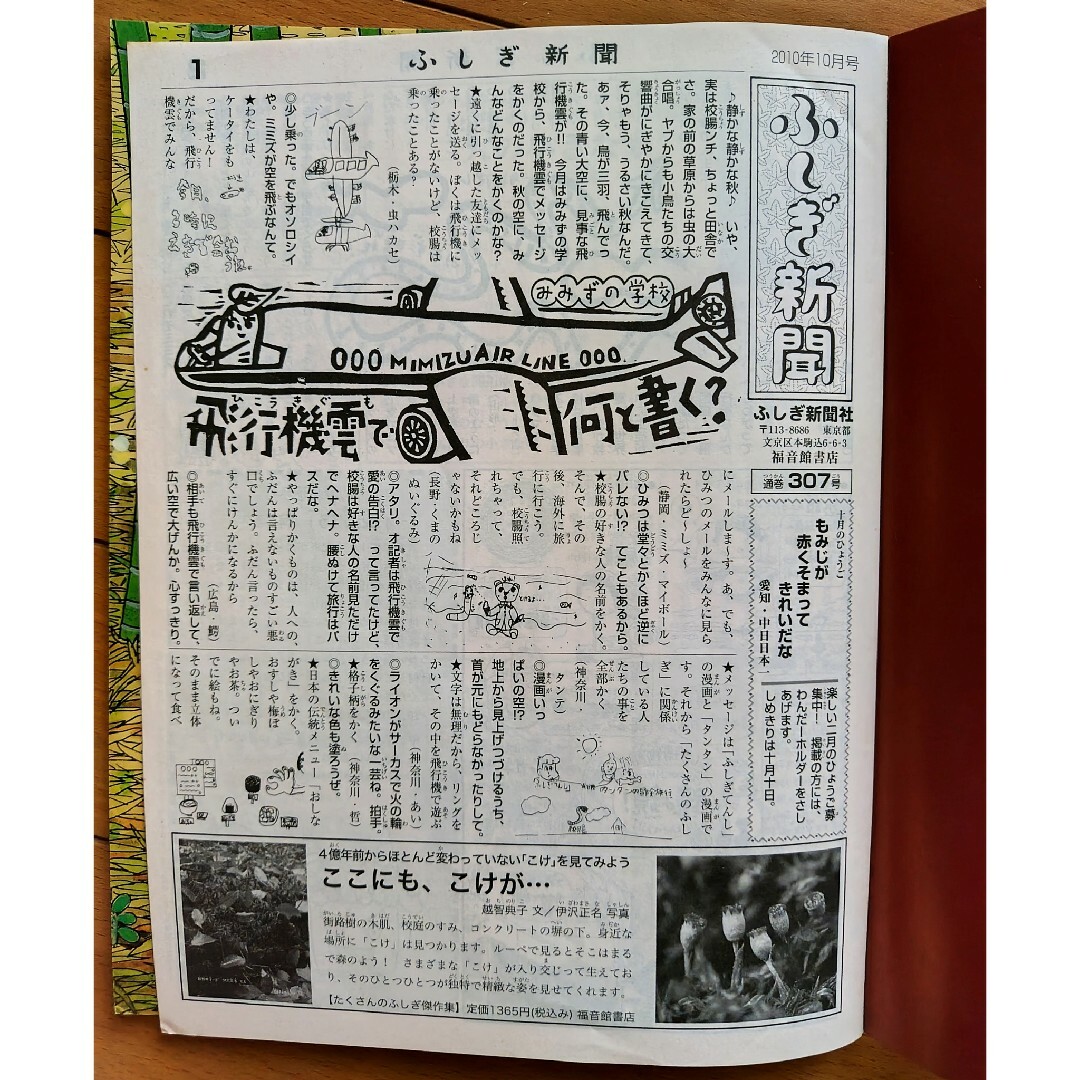 1
ふしぎ新聞
2010年10月号
ふしぎ新聞
ふしぎ新聞社
〒113-8686　東京都
文京区本駒込6-6-3
福音館書店
通巻307号
十月のひょうご
もみじが
赤くそまって
きれいだな
愛知・中日日本一
楽しい二月のひょうご募
集中！　掲載の方には、
わんだーホルダーをさし
あげます。
しめきりは十月十日。
♪静かな静かな秋♪　いや、
実は校腸ンチ、ちょっと田舎で
さ。家の前の草原からは虫の大
合唱。ヤブからも小鳥たちの交
響曲がにぎやかにきこえてきて、
そりゃもう、うるさい秋なんだ。
あァ、今、鳥が三羽、飛んでっ
た。その青い大空に、見事な飛
行機雲が!!　今月はみみずの学
校から、飛行機雲でメッセージ
をかくのだった。秋の空に、み
んなどんなことをかくのかな？
★遠くに引っ越した友達にメッ
セージを送る。ぼくは飛行機に
乗ったことがないけど、校腸は
乗ったことある？
（栃木・虫ハカセ）
◎少し乗った。でもオソロシイ
や。ミミズが空を飛ぶなんて。
★わたしは、
ケータイをも
ってません！
だから、飛行
機雲でみんな
ブーン
今日、
3時に
みみずの学校
OOO MIMIZU AIR LINE OOO
飛行機雲で
何と書く？
にメールしま〜す。あ、でも、
ひみつのメールをみんなに見ら
れたらど〜しょ〜
（静岡・ミミズ・マイボール）
◎ひみつは堂々とかくほど逆に
バレない!?　てこともあるから。
★校腸の好きな人の名前をかく。
そんで、その
後、海外に旅
行に行こう。
でも、校腸照
れちゃって、
それどころじ
ゃないかもね
（長野・くまの
ぬいぐるみ）
◎アタリ。オ記者は飛行機雲で
愛の告白!?　って言ってたけど、
校腸は好きな人の名前見ただけ
でヘナヘナ。腰ぬけて旅行はパ
スだな。
★やっぱりかくものは、人への、
ふだんは言えないものすごい悪
口でしょう。ふだん言ったら、
すぐけんかになるから
（広島・鰐）
◎相手も飛行機雲で言い返して、
広い空で大げんか。心すっきり。
★メッセージは「ふしぎてんし」
の漫画と「タンタン」の漫画で
す。それから「たくさんのふし
ぎ」に関係
している人
たちの事を
全部かく
（神奈川・
タンテ）
◎漫画いっ
ぱいの空!?
地上から見上げつづけるうち、
首が元にもどらなかったりして。
★文字は無理だから、リングを
かいて、その中を飛行機で遊ぶ
（神奈川・あい）
◎ライオンがサーカスで火の輪
をくぐるみたいな一芸ね。拍手。
★格子柄をかく　（神奈川・哲）
◎きれいな色も塗ろうぜ。
★日本の伝統メニュー「おしな
がき」をかく。
おすしや梅ぼ
しやおにぎり
やお茶。つい
でに絵もね。
そのまま立体
になって食べ
4億年前からほとんど変わっていない「こけ」を見てみよう
ここにも、こけが…
越智典子 文／伊沢正名 写真
街路樹の木肌、校庭のすみ、コンクリートの塀の下。身近な
場所に「こけ」は見つかります。ルーペで見るとそこはまる
で森のよう！　さまざまな「こけ」が入り交じって生えてお
り、そのひとつひとつが独特で精緻な姿を見せてくれます。
【たくさんのふしぎ傑作集】定価1365円(税込み) 福音館書店